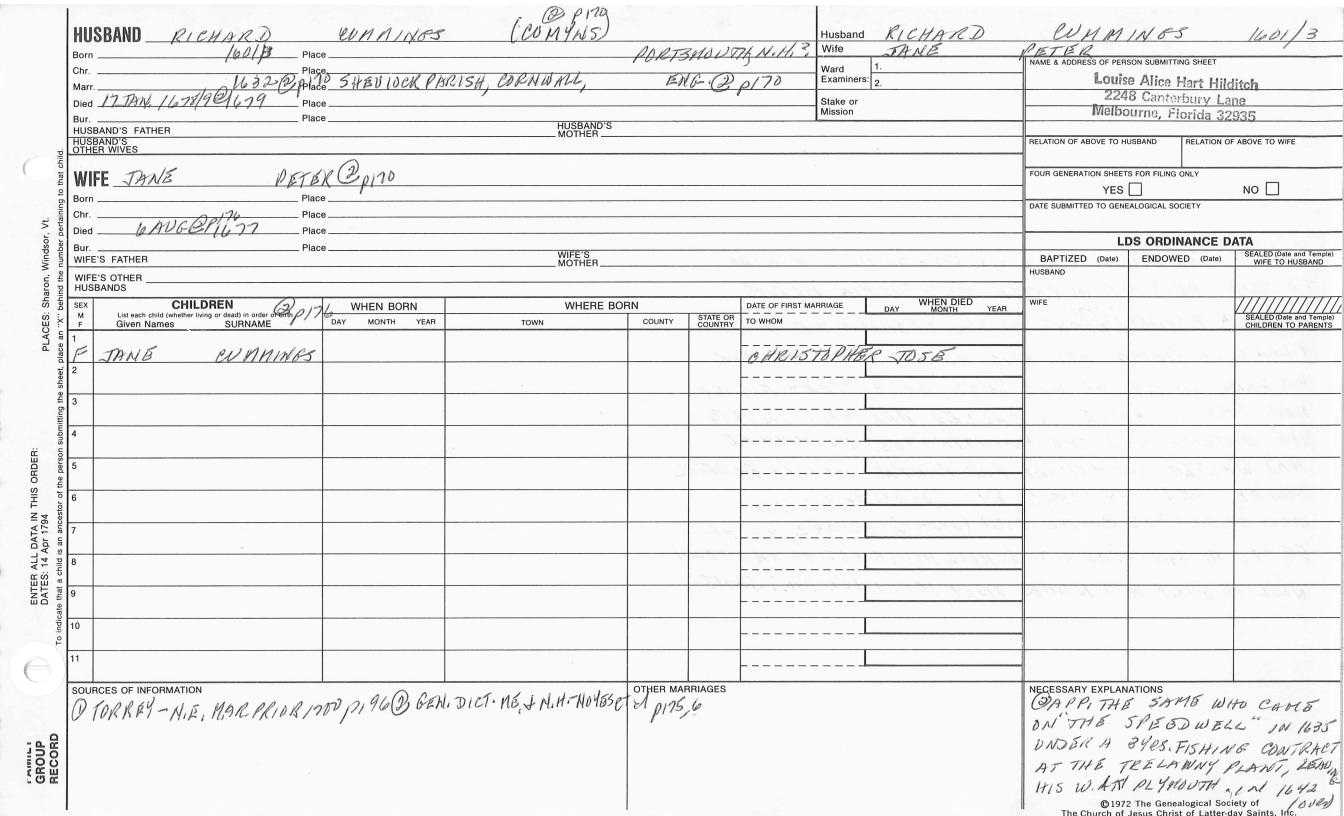 ② p170
HUSBAND RICHARD CUMMINGS (COMYNS)
Born 1601/3 Place PORTSMOUTH, N.H.?
Chr. Place
Marr. 1632 ② p170 Place SHEVIOCK PARISH, CORNWALL, ENG. ② p170
Died 17 JAN. 1678/9 @ 1679 Place
Bur. Place
HUSBAND'S FATHER HUSBAND'S MOTHER
HUSBAND'S OTHER WIVES
Husband RICHARD CUMMINGS 1601/3
Wife JANE PETER
Ward Examiners: 1.
2.
Stake or Mission
NAME & ADDRESS OF PERSON SUBMITTING SHEET
Louise Alice Hart Hilditch
2248 Canterbury Lane
Melbourne, Florida 32935
RELATION OF ABOVE TO HUSBAND RELATION OF ABOVE TO WIFE
FOUR GENERATION SHEETS FOR FILING ONLY
YES NO
DATE SUBMITTED TO GENEALOGICAL SOCIETY
WIFE JANE PETER ② p170
Born Place
Chr. Place
Died 6 AUG ② p176 1677 Place
Bur. Place
WIFE'S FATHER WIFE'S MOTHER
WIFE'S OTHER HUSBANDS
LDS ORDINANCE DATA
BAPTIZED (Date) ENDOWED (Date) SEALED (Date and Temple) WIFE TO HUSBAND
HUSBAND
WIFE
SEALED (Date and Temple) CHILDREN TO PARENTS
SEX M F
CHILDREN ② p176
List each child (whether living or dead) in order of birth
Given Names SURNAME
WHEN BORN
DAY MONTH YEAR
WHERE BORN
TOWN COUNTY STATE OR COUNTRY
DATE OF FIRST MARRIAGE
TO WHOM
WHEN DIED
DAY MONTH YEAR
1
F JANE CUMMINGS CHRISTOPHER JOSE
2
3
4
5
6
7
8
9
10
11
SOURCES OF INFORMATION
① TORREY - N.E. MAR. PRIOR 1700 p196 ② GEN. DICT. ME. & N.H. - NOYES et al
p175,6
OTHER MARRIAGES
NECESSARY EXPLANATIONS
② APP. THE SAME WHO CAME
ON "THE SPEEDWELL" IN 1635
UNDER A 3 YRS. FISHING CONTRACT
AT THE TRELAWNY PLANT,
HIS W. AT PLYMOUTH, in 1642
(over)
©1972 The Genealogical Society of
The Church of Jesus Christ of Latter-day Saints, Inc.
ENTER ALL DATA IN THIS ORDER:
DATES: 14 Apr 1794 PLACES: Sharon, Windsor, Vt.
To indicate that a child is an ancestor of the person submitting the sheet, place an "X" behind the number pertaining to that child.
FAMILY
GROUP
RECORD